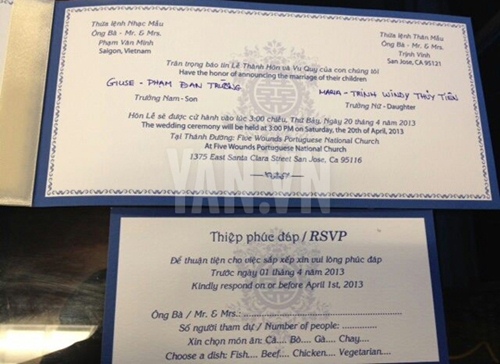 Thừa lệnh Nhạc Mẫu
Ông Bà - Mr. & Mrs.
Phạm Văn Minh
Saigon, Vietnam
Thừa lệnh Thân Mẫu
Ông Bà - Mr. & Mrs.
Trịnh Vinh
San Jose, CA 95121
Trân trọng báo tin Lễ Thành Hôn và Vu Quy của con chúng tôi
Have the honor of announcing the marriage of their children
GIUSE - PHẠM ĐAN TRƯỜNG
MARIA - TRỊNH WINDY THỦY TIÊN
Trưởng Nam - Son
Trưởng Nữ - Daughter
Hôn Lễ sẽ được cử hành vào lúc 3:00 chiều, Thứ Bảy, Ngày 20 tháng 4 năm 2013
The wedding ceremony will be held at 3:00 PM on Saturday, the 20th of April, 2013
Tại Thánh Đường: Five Wounds Portuguese National Church
At Five Wounds Portuguese National Church
1375 East Santa Clara Street San Jose, Ca 95116
YAN.VN
Thiệp phúc đáp / RSVP
Để thuận tiện cho việc sắp xếp xin vui lòng phúc đáp
Trước ngày 01 tháng 4 năm 2013
Kindly respond on or before April 1st, 2013
Ông Bà / Mr. & Mrs.: ........................................
Số người tham dự / Number of people: ......
Xin chọn món ăn: Cá.... Bò.... Gà.... Chay....
Choose a dish: Fish.... Beef.... Chicken.... Vegetarian....